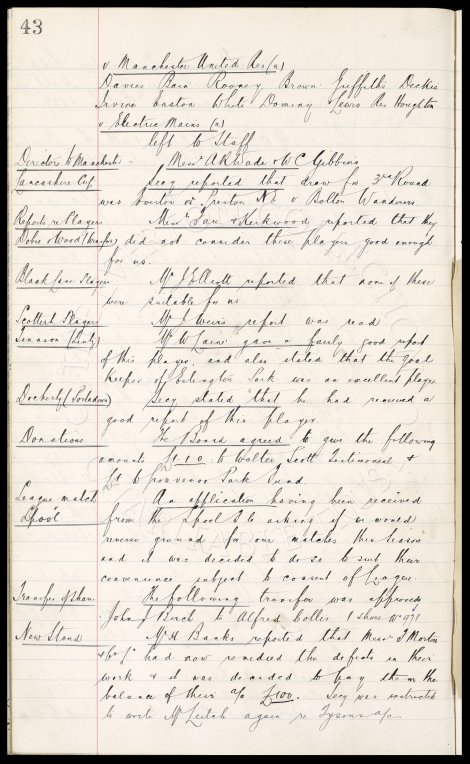 43
v Manchester United Res (a)
Davies Bain Rooney Brown Griffiths Dickie
Irvine Easton White Dominy Lewis Res Houghton
v Electric Mains (a)
left to Staff
Directors to Manchester Messrs A R Wade & W C Gibbins
Lancashire Cup Secy reported that draw for 3rd Round
was Everton or Preston N.E. v Bolton Wanderers
Reports re Players Messrs Fare & Kirkwood reported that they
Dobie & Wood (Chester) did not consider these players good enough
for us.
Blank Lane Players Mr J Elliott reported that none of these
were suitable for us
Scottish Players Mr J Weir's report was read
Linnion (Leith) Mr W Laird gave a fairly good report
of this player, and also stated that the goal
keeper of Eslington Park was an excellent player
Docherty (Portadown) Secy stated that he had received a
good report of this player.
Donations The Board agreed to give the following
amounts £1.1.0 to Walter Scott Testimonial, &
to Grosvenor Park Fund.
League match An application having been received
L'pool from the L'pool F.C. asking if we would
reverse ground for our matches this season
and it was decided to do so to suit their
convenience subject to consent of League.
Transfer of shares The following transfer was approved
John J Birch to Alfred Collis 1 share No 971
New Stand Mr H Banks reported that Messrs F Morton
& Co had now remedied the defects in their
work & it was decided to pay them the
balance of their a/c £100. Secy was instructed
to write Mr Leitch again re Tysons a/c